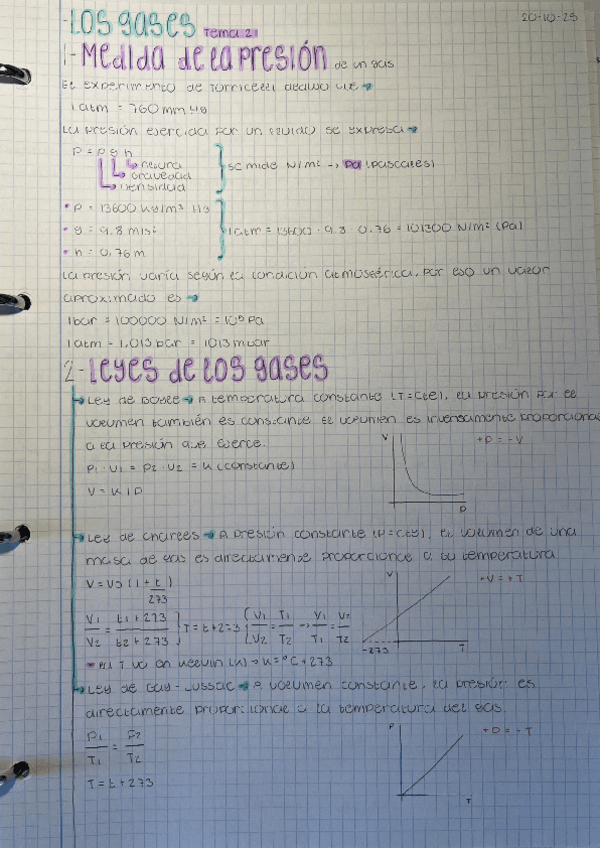 LOS gases Tema 2.1 20-10-25
1- Medida de la presión de un gas
El experimento de Torricelli dedujo que →
1 atm = 760 mm Hg
La presión ejercida por un líquido se expresa →
P = ρ g h
altura
gravedad
densidad
se mide N/m² → Pa (pascales)
• ρ = 13600 kg/m³ Hg
• g = 9.8 m/s²
• h = 0,76 m
1 atm = 13600 · 9.8 · 0.76 = 101300 N/m² (Pa)
La presión varía según la condición atmosférica, por eso un valor
aproximado es →
1 bar = 100000 N/m² = 10⁵ Pa
1 atm = 1,013 bar = 1013 mbar
2- Leyes de los gases
Ley de Boyle → A temperatura constante (T=cte), la presión por el
volumen también es constante. El volumen es inversamente proporcional
a la presión que ejerce.
P₁ · V₁ = P₂ · V₂ = K (constante)
V = K / P
V
P
+P = -V
Ley de Charles → A presión constante (P=cte), el volumen de una
masa de gas es directamente proporcional a su temperatura
V = V₀ (1 + t/273)
V₁/V₂ = t₁ + 273/t₂ + 273 } T = t + 273 { V₁/V₂ = T₁/T₂ → V₁/T₁ = V₂/T₂
V
T
-273
+V = +T
la T va en kelvin (K) → K = °C + 273
Ley de Gay-Lussac → A volumen constante, la presión es
directamente proporcional a la temperatura del gas.
P₁/T₁ = P₂/T₂
T = t + 273
P
T
+P = -T